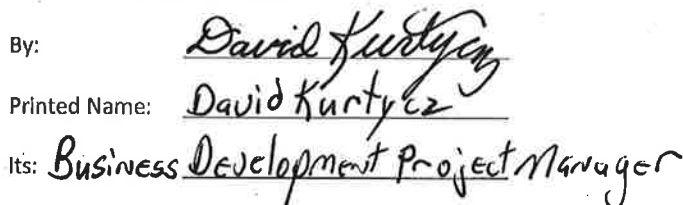 By: David Kurtycz
Printed Name: David Kurtycz
Its: Business Development Project Manager